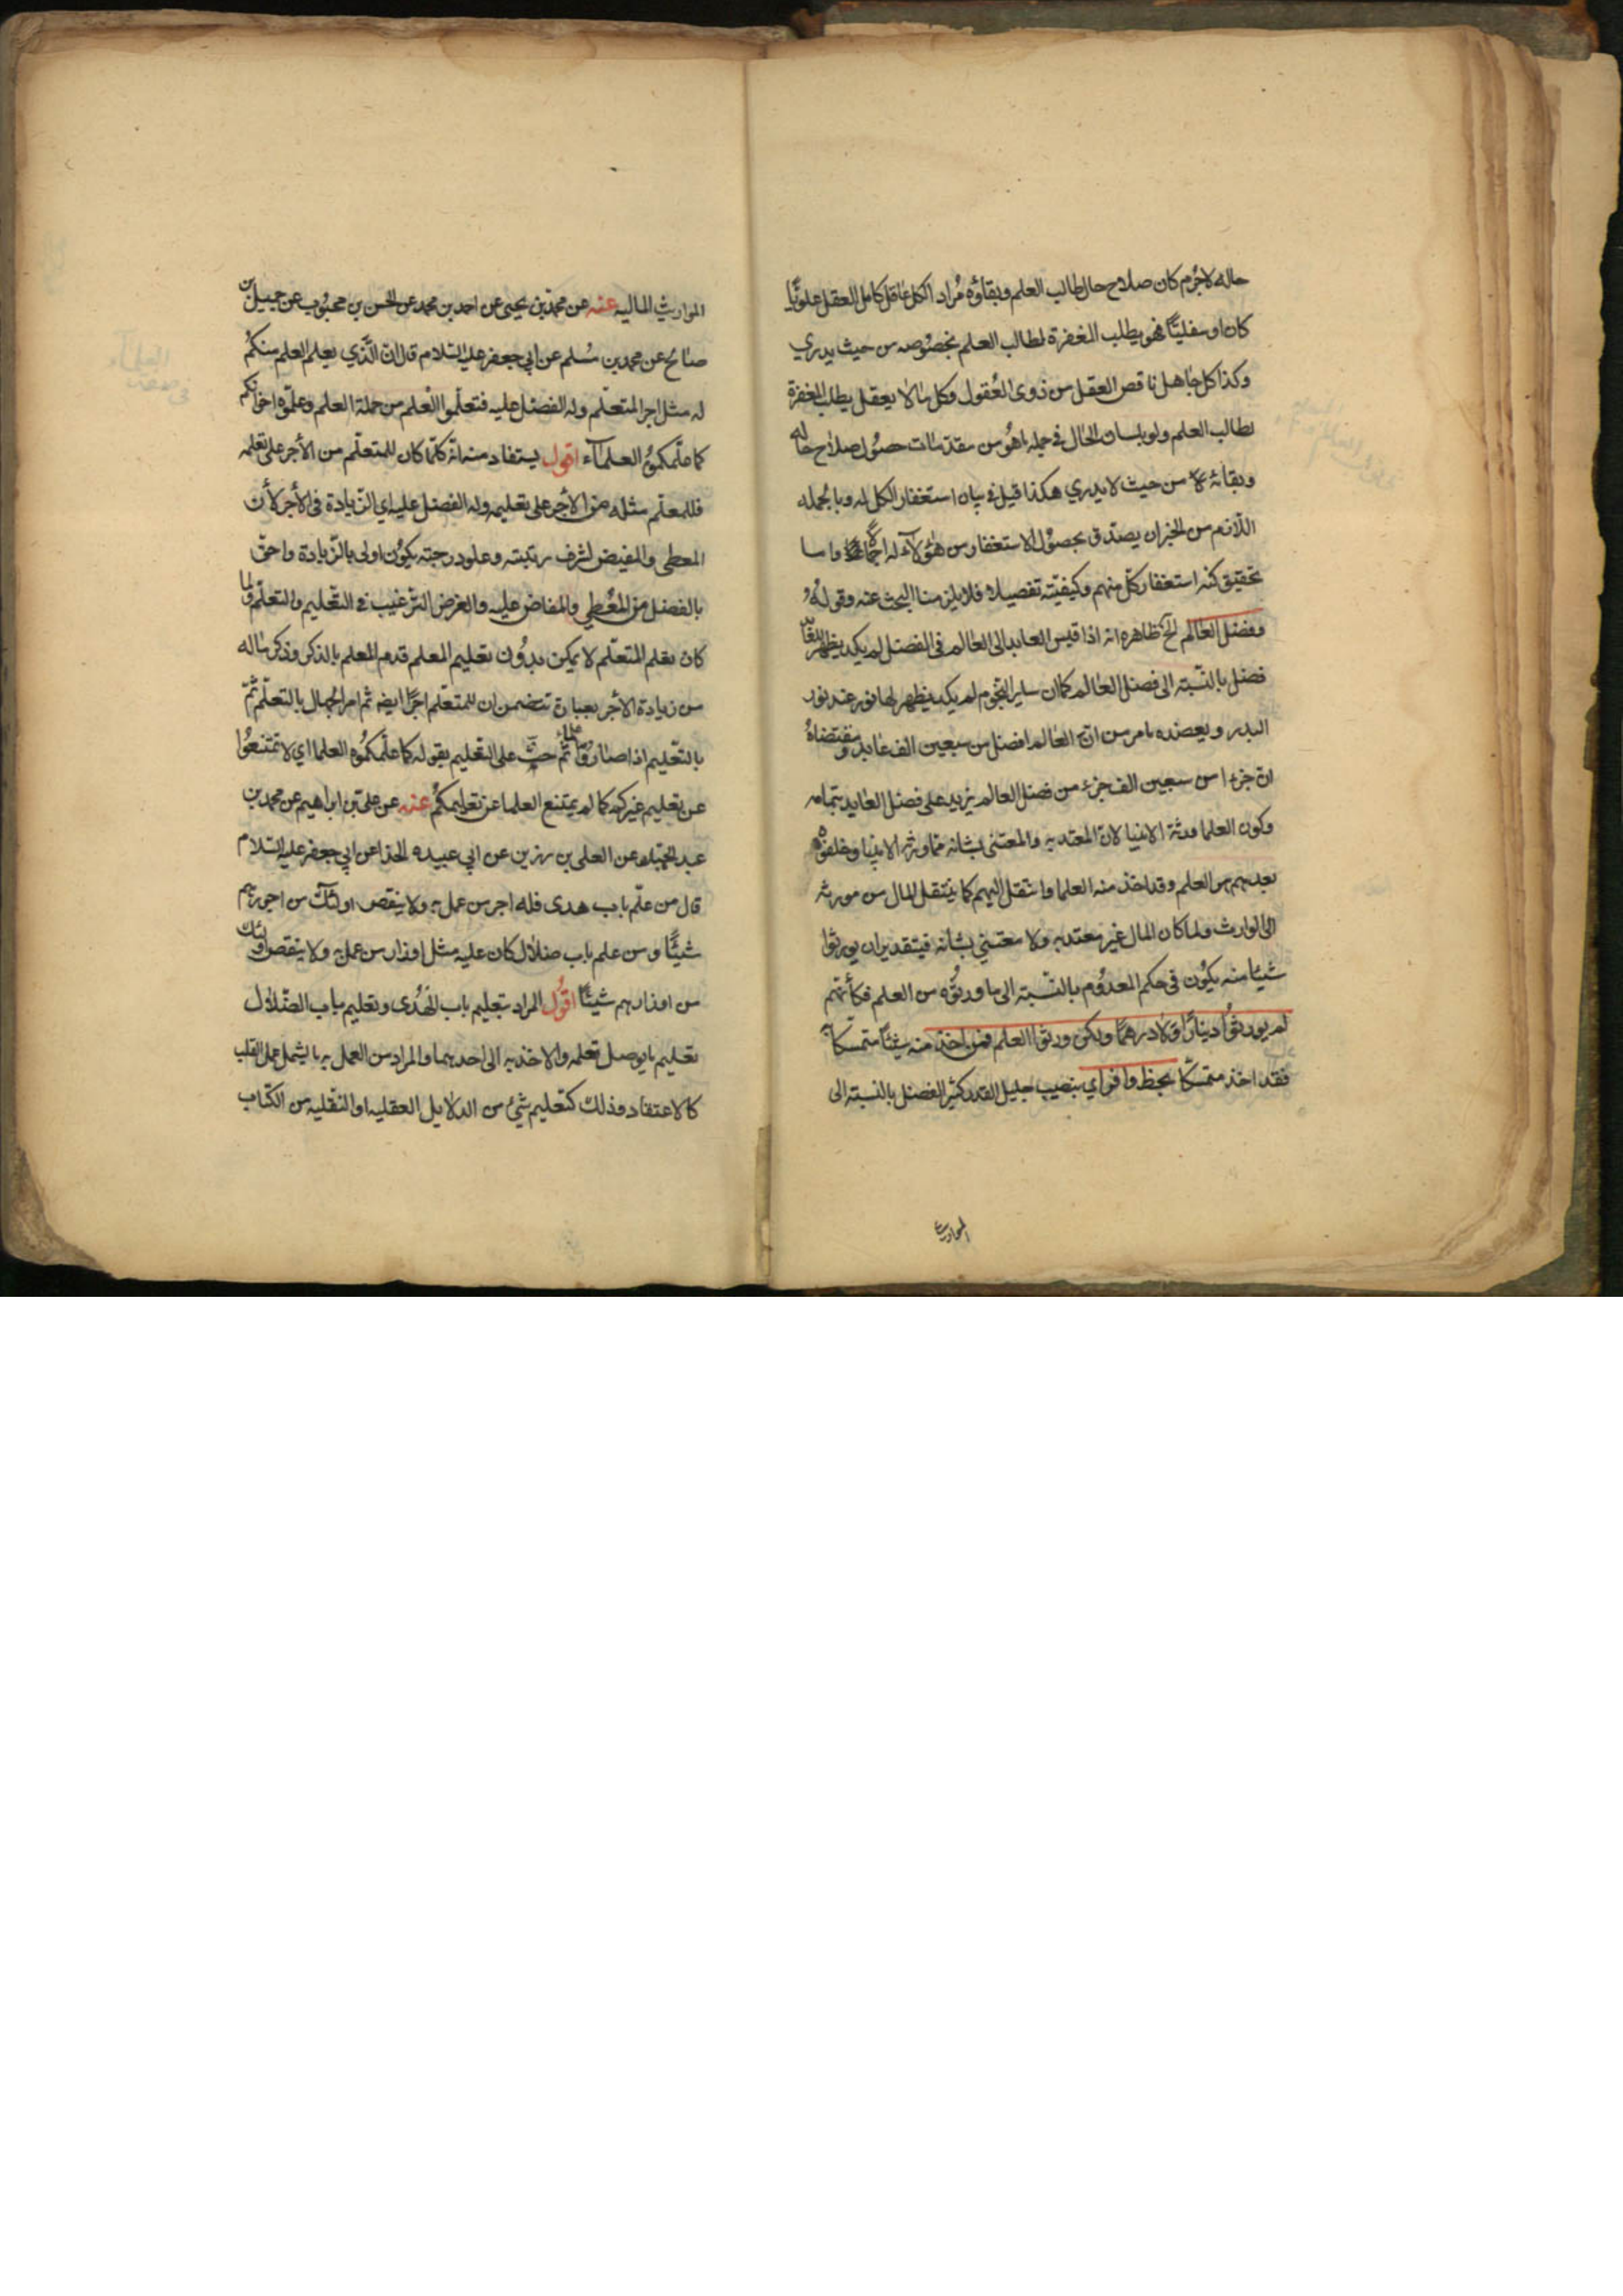 حاله لاجرم كان صلاح حال طالب العلم وبقاؤه مراد الكل عاقل كامل العقل علويّا
كان او سفليّا فهو يطلب المغفرة لطالب العلم بخصوصه من حيث يدري
وكذا كل جاهل ناقص العقل من ذوى العقول وكل ما لا يعقل يطلب المغفرة
لطالب العلم ولو بلسان الحال في جملة ما هو من مقدمات حصول صلاح حاله
وبقائه من حيث لا يدري هكذا قيل في بيان استغفار الكل له وبالجمله
اللازم من الخبر ان يصدق بحصول الاستغفار من هؤلآء له اجمالا واما
تحقيق كنه استغفار كل منهم وكيفيته تفصيلا فلا يلزمنا البحث عنه وقوله
وفضل العالم الخ ظاهره انه اذا قيس العابد الى العالم فى الفضل لم يكد يظهر للعابد
فضل بالنسبة الى فضل العالم كما ان ساير النجوم لم يكد يظهر لها نور عند نور
البدر ويعضده ما مر من ان العالم افضل من سبعين الف عابد ومقتضاه
ان جزءا من سبعين الف جزء من فضل العالم يزيد على فضل العابد بتمامه
وكون العلما ورثة الانبيا لان المعتد به والمعتنى بشانه مما ورثه الانبيا وخلفوه
بعدهم هو العلم وقد اخذ منه العلما وانتقل اليهم كما ينتقل المال من مورثه
الى الوارث ولما كان المال غير معتد به ولا معتنى بشانه فبتقدير ان يورثوا
شيئا منه يكون فى حكم المعدوم بالنسبة الى ما ورثوه من العلم فكأنهم
لم يورثوا دينارًا ولا درهمًا ولكن ورثوا العلم فمن اخذ منه شيئا متمسكا به
فقد اخذ متمسكا بحظ وافر اي بنصيب جليل القدر كثير الفضل بالنسبة الى
المواريث
المواريث الماليه عنه عن محمد بن يحيى عن احمد بن محمد عن الحسن بن محبوب عن جميل بن
صالح عن محمد بن مسلم عن ابي جعفر عليه السلام قال ان الذي يعلم العلم منكم
له مثل اجر المتعلم وله الفضل عليه فتعلموا العلم من حملة العلم وعلموه اخوانكم
كما علمكموه العلمآء اقول يستفاد منه انه كلما كان للمتعلم من الأجر على تعلمه
فللمعلم مثله من الأجر على تعليمه وله الفضل عليه اي الزيادة فى الأجر لأن
المعطى والمفيض لشرف رتبته وعلو درجته يكون اولى بالزيادة واحق
بالفضل من المعطي والمفاض عليه والغرض الترغيب فى التعليم والتعلم ولما
كان تعلم المتعلم لا يمكن بدون تعليم المعلم قدم المعلم بالذكر وذكر ماله
من زيادة الأجر بعبارة تتضمن ان للمتعلم اجرًا ايضه ثم امر الجهال بالتعلم ثم
بالتعليم اذا صاروا علماء ثم حث على التعليم بقوله كما علمكموه العلما اي لا تمتنعوا
عن تعليم غيركم كما لم يمتنع العلما عن تعليمكم عنه عن على بن ابراهيم عن محمد بن
عبد الحميد عن العلى بن رزين عن ابي عبيده الحذا عن ابي جعفر عليه السلام
قال من علّم باب هدى فله اجر من عمل به ولا ينقص اولئك من اجورهم
شيئًا ومن علم باب ضلال كان عليه مثل اوزار من عمل به ولا ينقص اولئك
من اوزارهم شيئًا اقول المراد بتعليم باب الهدى وتعليم باب الضلال
تعليم ما يوصل تعلمه والاخذ به الى احدهما والمراد من العمل به ما يشمل عمل القلب
كالاعتقاد وذلك كتعليم شئ من الدلايل العقليه او النقليه من الكتاب